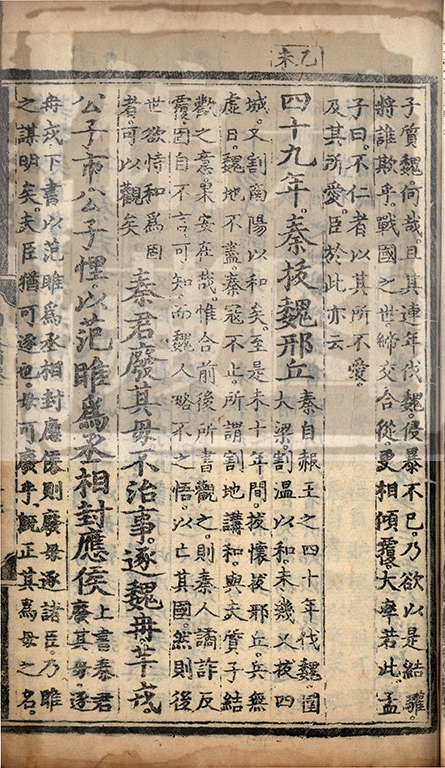 乙未
子質魏何哉。且其連年伐魏。侵暴不已。乃欲以是結驩。
將誰欺乎。戰國之世。締交合從。更相傾覆。大率若此。孟
子曰。不仁者以其所不愛。
及其所愛。臣於此亦云
四十九年。秦拔魏邢丘
秦自赧王之四十年。伐魏圍
大梁。割温以和。未幾又拔四
城。又割南陽以和矣。至是未十年間。拔懷拔邢丘。兵無
虛日。魏地不盡。秦寇不止。所謂割地講和。與夫質子結
歡之意。果安在哉。惟合前後所書觀之。則秦人譎詐反
覆。固自不言可知。而魏人略不之悟。以亡其國。然則後
世欲恃和爲固
者可以觀矣
秦君廢其母不治事。逐魏冉芈戎
公子市公子悝。以范雎爲丞相封應侯
上書秦君
廢其母。逐
冉戎下書以范雎爲丞相封應侯。則廢母逐諸臣。乃雎
之謀明矣。夫臣猶可逐也。母可廢乎。既正其爲母之名。